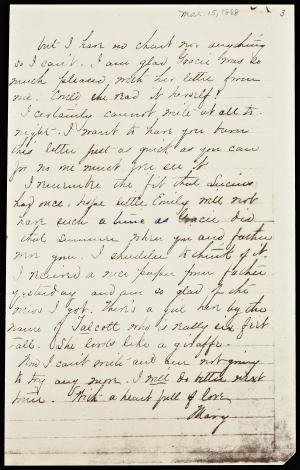 Mar. 15, 1868
3
but I have no chart nor anything
so I can't. I am glad Gracie was so
much pleased with her letter from
me. Could she read it herself?
I certainly cannot write at all to-
night. I want to have you burn
this letter just as quick as you can
for no one must ever see it.
I remember the fit that Lucius
had once. hope little Emily will not
have such a time as Gracie did
that summer when you and father
were gone. I shudder to think of it.
I received a nice paper from father
yesterday and am so glad of the
news I got. There's a girl here by the
name of Talcott who is really six feet
tall. She looks like a giraffe.
Now I can't write and am not going
to try any more. I will do better next
time. With a heart full of love
Mary